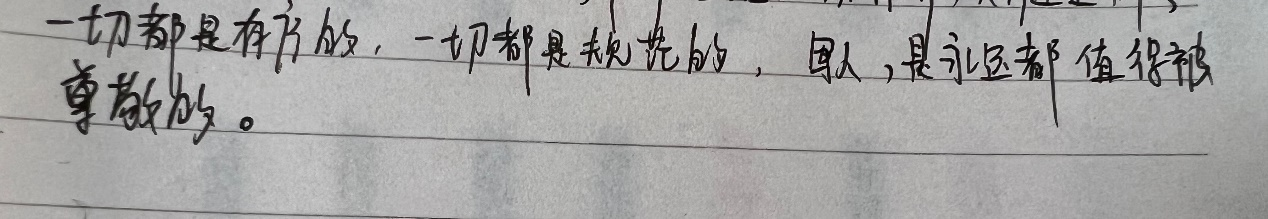 一切都是有方的，一切都是规范的，国人，是永远都值得被
尊敬的。